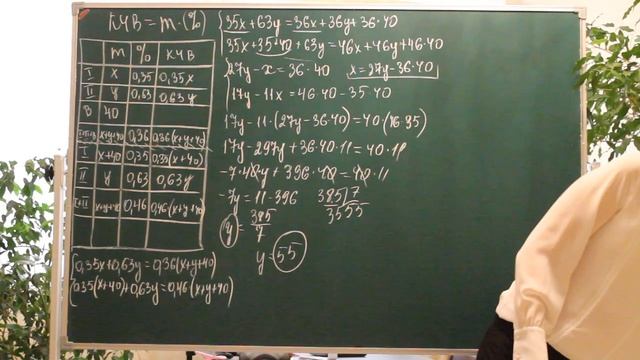 КЧВ = m · (%)
m % КЧВ
I x 0,35 0,35x
II y 0,63 0,63y
В 40
I+II+В x+y+40 0,36 0,36(x+y+40)
I x+40 0,35 0,35(x+40)
II y 0,63 0,63y
I+II x+y+40 0,46 0,46(x+y+40)
{0,35x+0,63y=0,36(x+y+40)
0,35(x+40)+0,63y=0,46(x+y+40)
{35x+63y=36x+36y+36·40
35x+35·40+63y=46x+46y+46·40
{27y-x=36·40 x=27y-36·40
17y-11x=46·40-35·40
17y-11·(27y-36·40)=40·(46-35)
17y-297y+36·40·11=40·11
-7·40y+396·40=40·11
-7y=11-396
y=385/7
385 7
35 55
35
y=55